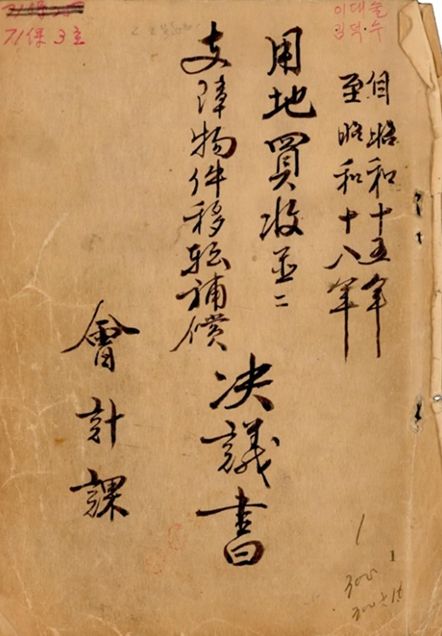 自昭和十五年
至昭和十八年
用地買收並ニ
支障物件移轉補償
決議書
會計課
71保3호
이대술
김덕수
1
1
300